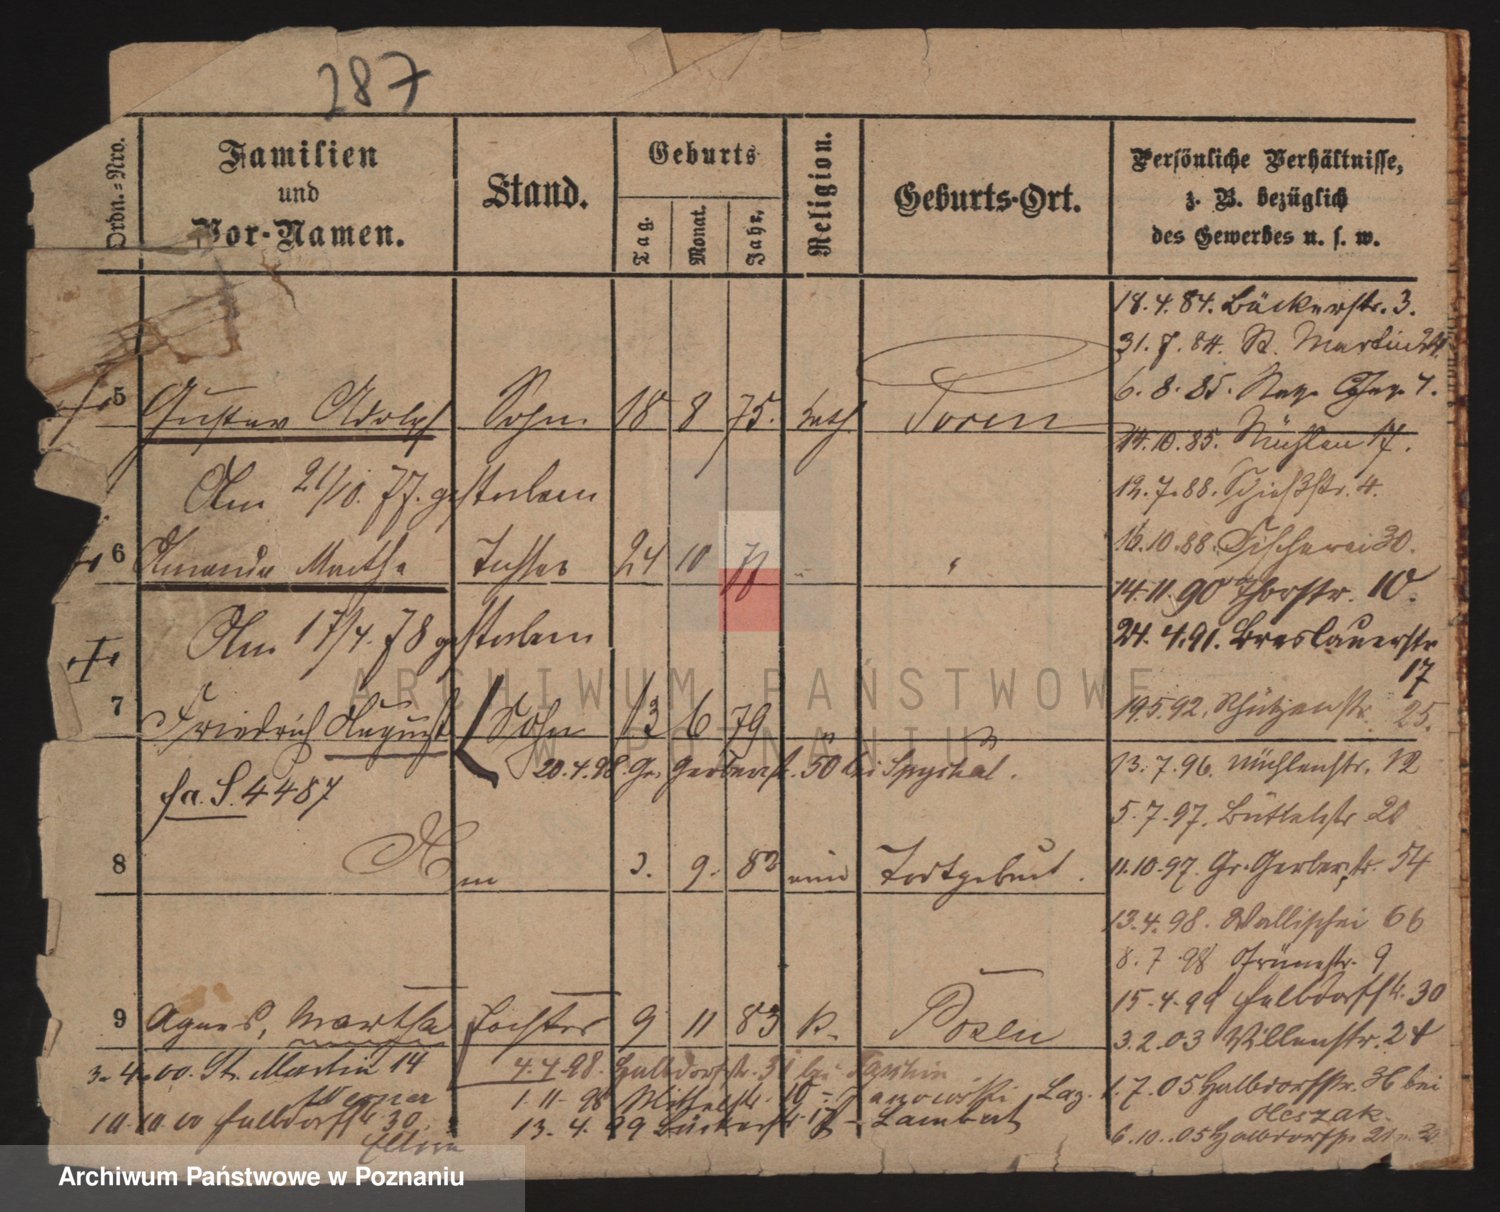 287
Ordn.-Nro.
Familien
und
Vor-Namen.
Stand.
Geburts
Tag.
Monat.
Jahr.
Religion.
Geburts-Ort.
Persönliche Verhältnisse,
z. B. bezüglich
des Gewerbes u. s. w.
18.4.84. Bäckerstr. 3.
31.7.84. St. Martin 24.
6.8.85.
5 Gustav Adolph Sohn 18 8 75. Posen
14.10.85. Mühlen 17.
Am 21/10. 77. gestorben
12.7.88. Schießstr. 4.
6 Amanda Martha Tochter 24 10 "
16.10.88. Fischerei 30.
14.11.90 Thorstr. 10.
Am 17/4. 78 gestorben
24.4.91. Breslauerstr
17
7 Friedrich August Sohn 13 6 79 "
19.5.92. Schützenstr. 25.
20.4.98. Gr. Gerberstr. 50 bei
13.7.96. Mühlenstr. 12
fa. S. 4487
5.7.97. Büttelstr. 20
8 3. 9. 82 eine Todtgeburt.
11.10.97. Gr. Gerberstr. 54
13.4.98. Wallischei 66
8.7.98 Grünestr. 9
15.4.99 Halbdorfstr. 30
9 Agnes, Martha Tochter 9 11 83 k. Posen
3.2.03 Villenstr. 24
3.4.00. St. Martin 14
4.4.98. Halbdorfstr. 31 bei
1.7.05 Halbdorfstr. 36 bei
Werner
1.11.98 Mittelstr. 10
Laz.
10.10.00 Halbdorfstr. 30.
13.4.99 Bäckerstr. 17 - Lambert
6.10.05 Halbdorfstr
Eltern
ARCHIWUM PAŃSTWOWE
W POZNANIU
Archiwum Państwowe w Poznaniu